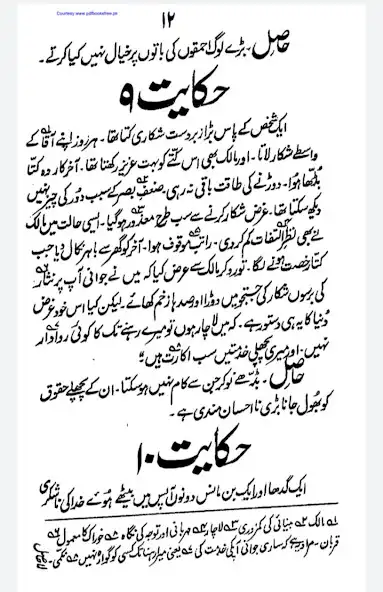 Courtesy www.pdfbooksfree.pk
۱۲
حاصل۔ بڑے لوگ احمقوں کی باتوں پر خیال نہیں کیا کرتے۔
حکایت ۹
ایک شخص کے پاس بڑا زبردست شکاری کتا تھا۔ ہر روز اپنے آقا کے
واسطے شکار لاتا۔ اور مالک بھی اس کتے کو بہت عزیز رکھتا تھا۔ آخر کار وہ کتا
بڈھا ہوا۔ دوڑنے کی طاقت باقی نہ رہی۔ ضعف بصر کے سبب دور کی چیز نہیں
دیکھ سکتا تھا۔ غرض شکار کرنے سے سب طرح معذور ہو گیا۔ ایسی حالت میں مالک
نے بھی نظر التفات کم کر دی۔ راتب موقوف ہوا۔ آخر کو گھر سے باہر نکال دیا جب
کتا رخصت ہونے لگا۔ تو رو کر مالک سے عرض کیا کہ میں نے جوانی آپ پر نثار
کی برسوں شکار کی جستجو میں دوڑا اور صدہا زخم کھائے۔ لیکن کیا اس خود غرض
دنیا کا یہ ہی دستور ہے۔ کہ میں لاچار ہوں تو میرے رہنے تک کا کوئی روادار
نہیں۔ اور میری پچھلی خدمتیں سب اکارت ہیں
حاصل۔ بڈھے نوکر جن سے کام نہیں ہو سکتا۔ ان کے پچھلے حقوق
کو بھول جانا بڑی نا احسان مندی ہے۔
حکایت ۱۰
ایک گدھا اور ایک بن مانس دونوں آپس میں بیٹھے ہوئے خدا کی ناشکری
۱ مالک ۲ بینائی کی کمزوری ۳ لاچار ۴ مہربانی اور توجہ کی نگاہ ۵ خوراک کا معمول ۶
قربان۔ مراد یہ ہے کہ ساری جوانی آپ کی خدمت کی ۷ یعنی میرا رہنا تک کسی کو گوارا نہیں ۸ نکمی۔